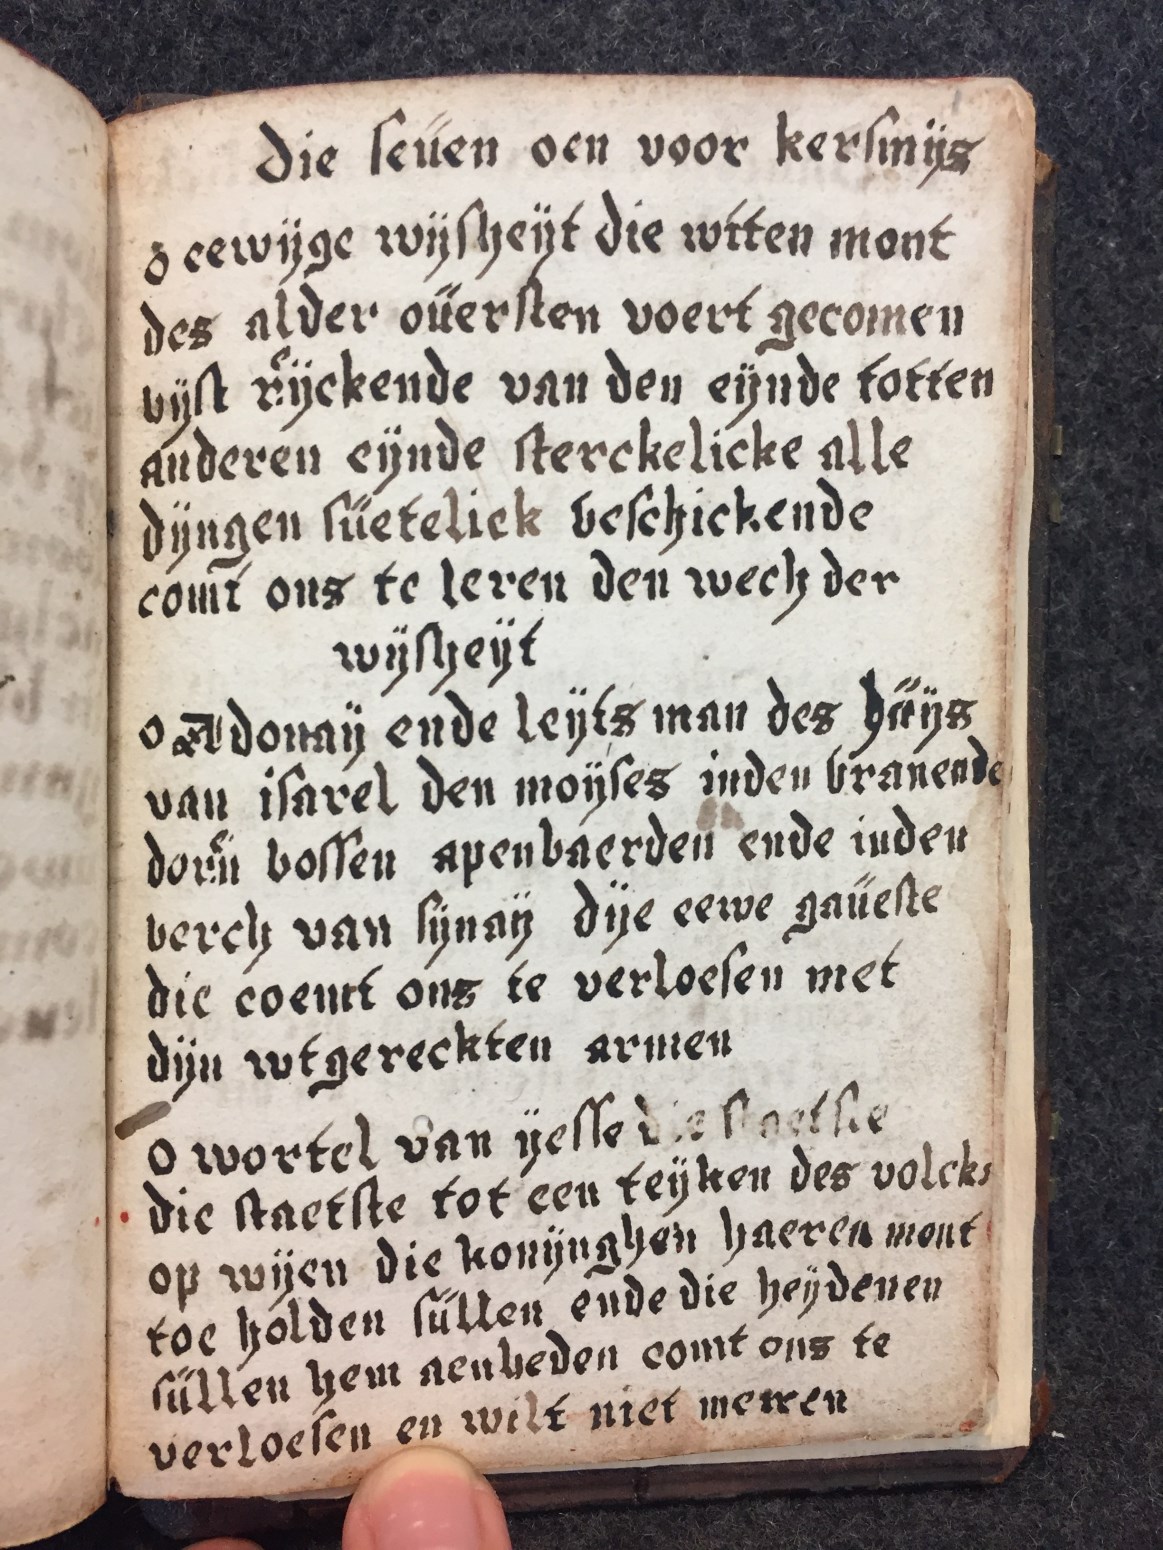 die seüen oen voor kersmijs
o eewÿge wÿsheÿt die wtten mont
des alder oüersten voert gecomen
bÿst reÿckende van den eÿnde totten
anderen eÿnde sterckelicke alle
dÿngen süetelick beschickende
comt ons te leren den wech der
wÿsheÿt
o Adonaÿ ende leÿts man des hüÿs
van isarel den moÿses inden branende
doren bossen apenbaerden ende inden
berch van sÿnaÿ dÿe eewe gaüeste
die coemt ons te verloesen met
dÿn wtgereckten armen
o wortel van ÿesse die staetste
die staetste tot een teÿken des volcks
op wÿen die konÿnghen haeren mont
toe holden süllen ende die heÿdenen
süllen hem aenbeden comt ons te
verloesen en wilt niet merren